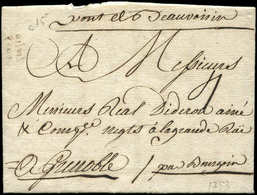 pont de Beauvoisin
A Messieurs
Messieurs Real Dideron ainé
& Comp.e negts a la grande Rüe
A Grenoble
par Bourgoin